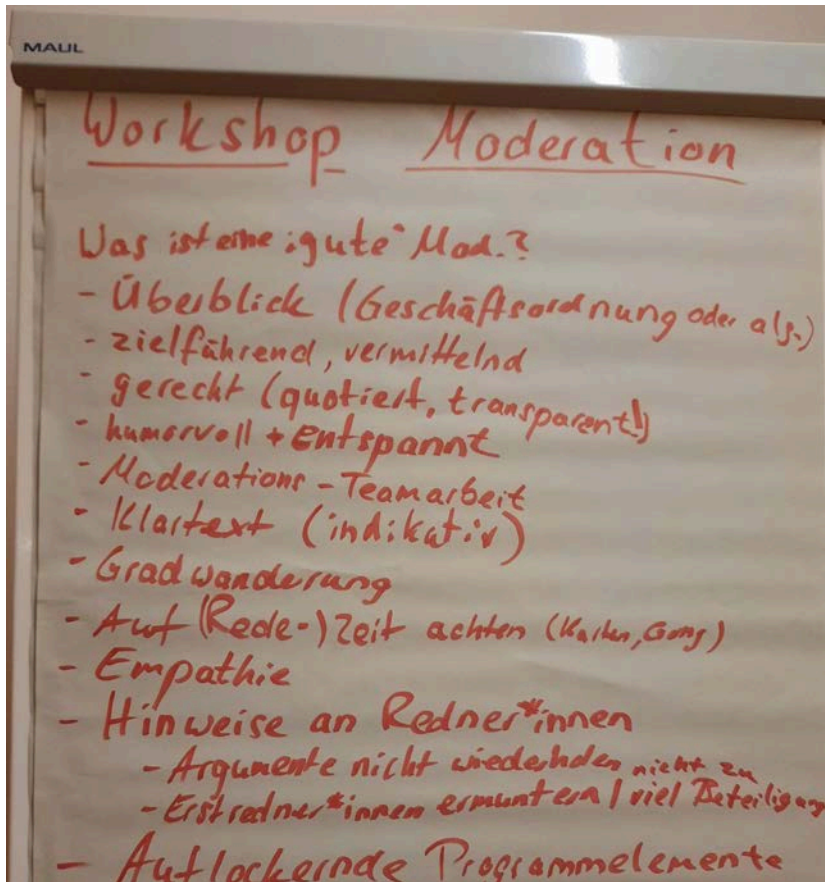 MAUL
Workshop Moderation
Was ist eine "gute" Mod.?
- Überblick (Geschäftsordnung oder als.)
- zielführend, vermittelnd
- gerecht (quotiert, transparent!)
- humorvoll + Entspannt
- Moderations-Teamarbeit
- Klartext (indikativ)
- Gradwanderung
- Auf (Rede-) Zeit achten (Karten, Gong)
- Empathie
- Hinweise an Redner*innen
- Argumente nicht wiederholen nicht zu
- Erstredner*innen ermuntern / viel Beteiligung
- Auflockernde Programmelemente